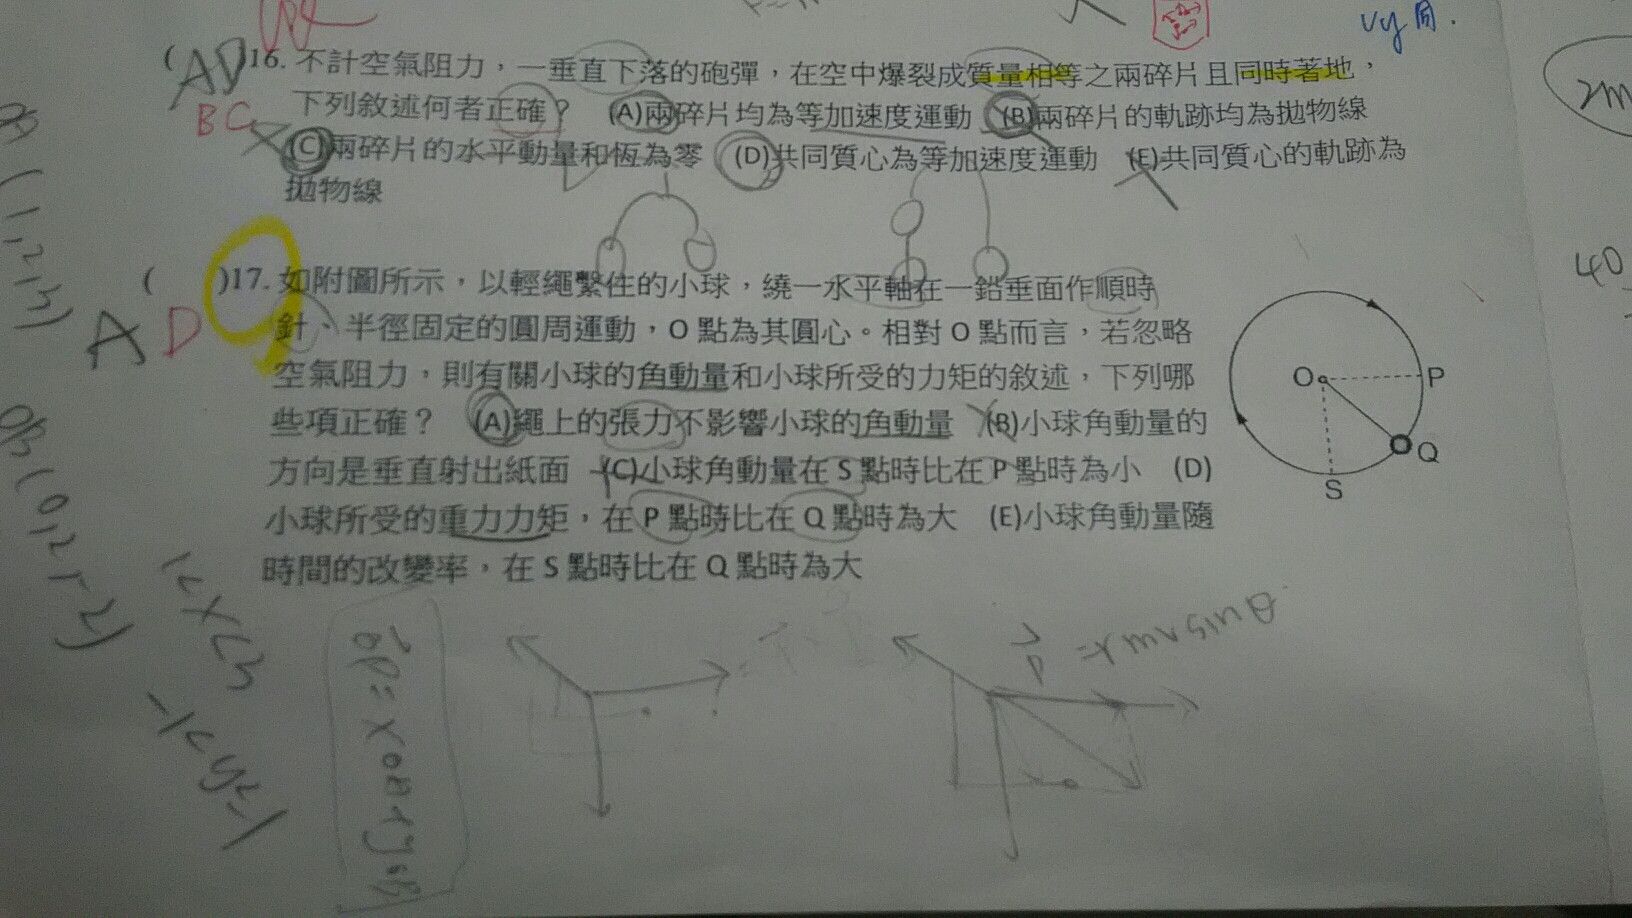 vy同.
( AD )16. 不計空氣阻力，一垂直下落的砲彈，在空中爆裂成質量相等之兩碎片且同時著地，
BC 下列敘述何者正確？ (A)兩碎片均為等加速度運動 (B)兩碎片的軌跡均為拋物線
(C)兩碎片的水平動量和恆為零 (D)共同質心為等加速度運動 (E)共同質心的軌跡為
拋物線
( )17. 如附圖所示，以輕繩繫住的小球，繞一水平軸在一鉛垂面作順時
A D 針、半徑固定的圓周運動，O 點為其圓心。相對 O 點而言，若忽略
空氣阻力，則有關小球的角動量和小球所受的力矩的敘述，下列哪
些項正確？ (A)繩上的張力不影響小球的角動量 (B)小球角動量的
方向是垂直射出紙面 (C)小球角動量在 S 點時比在 P 點時為小 (D)
小球所受的重力力矩，在 P 點時比在 Q 點時為大 (E)小球角動量隨
時間的改變率，在 S 點時比在 Q 點時為大
O
P
Q
S
2m
40
=rmvsinθ
1<x<3
-1<y<1